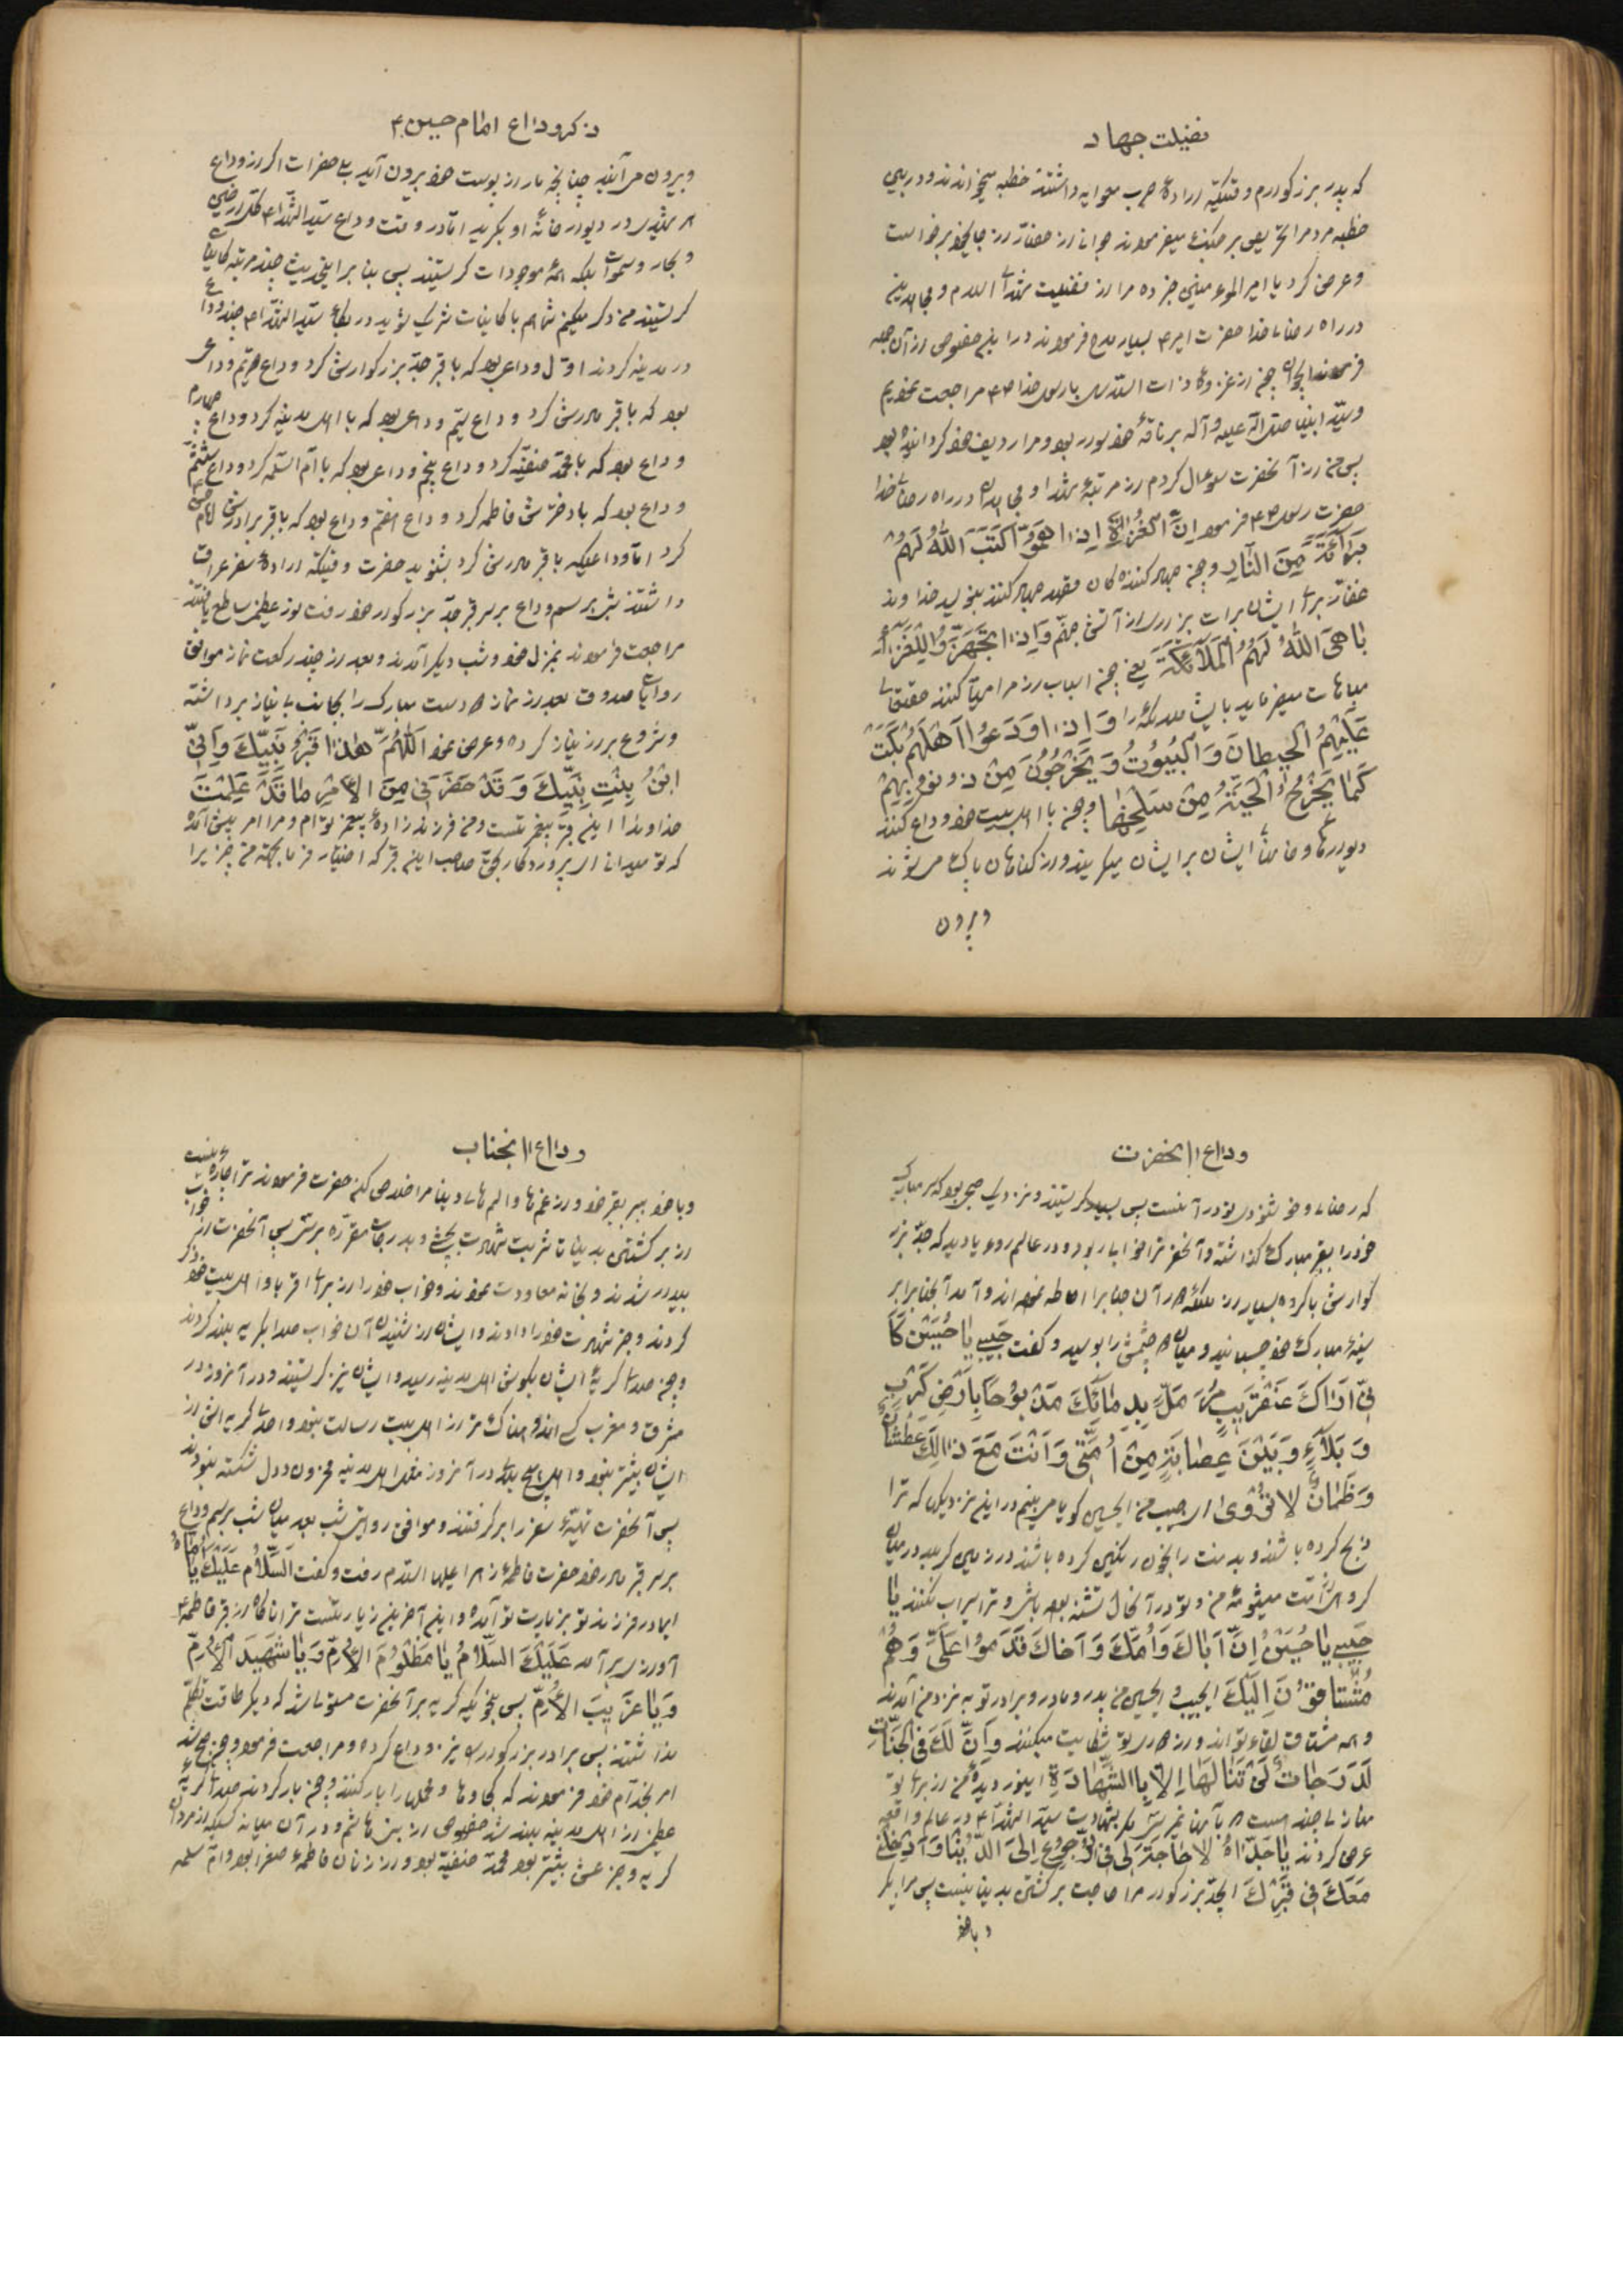 فضیلت جهاد
که پدر بزرگوارم وقتیکه اراده حرب معاویه داشتند خطبه میخواندند و در پی
خطبه مردم را تحریص بر جنگ میفرمودند جوانی از صفار از جای خود برخواست
و عرض کرد یا امیر المؤمنین خبر ده مرا از فضیلت شهدای اسلام و مجاهدین
در راه رضای خدا حضرت امیر ع بسیار مدح فرمودند در این خصوص از آن جمله
فرمودند ایجوان چون از غزوه ذات السلاسل با رسول خدا ص مراجعت نمودیم
و سید انبیا صلی الله علیه و آله بر ناقه خود سوار بود و مرا ردیف خود گردانیده بود
پس من از آنحضرت سوال کردم از مرتبه شهدا و مجاهدان در راه رضای خدا
حضرت رسول ص فرمود اِنَّ الْغُزاةَ اِذا هَمُّوا کَتَبَ اللهُ لَهُمْ
بَرآئَةً مِنَ النّارِ و چون جهاد کنندهگان قصد جهاد کنند بنویسد خداوند
برای ایشان برات بیزاری از آتش جهنم وَ اِذا تَجَهَّزُوا لِلْغَزْوِ
باهَی اللهُ لَهُمُ الْمَلآئِکَةَ یعنی چون اسباب راه را مهیا کنند حقتعالی
مباهات میفرماید بایشان ملائکه را وَ اِذا وَدَعُوا اَهْلَهُمْ بَکَتْ
عَلَیْهِمُ الْحیطانَ وَ الْبُیُوْتُ وَ یَخْرُجُوْنَ مِنْ ذُنُوْبِهِمْ
کَما یَخْرُجُ الْحَیَّةُ مِنْ سَلْخِها و چون با اهل بیت خود وداع کنند
دیوارها و خانهای ایشان بر ایشان میگریند و از گناهان پاک میشوند
و بیرون
ذکر وداع امام حسین ع
و بیرون می آیند چنانچه مار از پوست خود بیرون آید بلی حضرات اگر از وداع
هر شهیدی در و دیوار خانه او بگرید اما در وقت وداع سید الشهداء ع کل ارضین
و بحار و سموات بلکه همه موجودات گریستند پس بنا بر این حدیث چند مرتبه کاینات
گریستند من ذکر میکنم شما هم با کاینات شریک شوید در بکای سید الشهداء ع چند وداع
در مدینه کردند اول وداعی بود که با قبر جد بزرگوارش کرد وداع دویم وداعی
بود که با قبر مادرش کرد وداع سیم وداعی بود که با اهل مدینه کرد وداع چهارم
وداع بود که با محمد حنفیه کرد وداع پنجم وداعی بود که با ام السلمه کرد وداع ششم
وداع بود که با دخترش فاطمه کرد وداع هفتم وداع بود که با قبر برادرش امام حسن
کرد اما وداعیکه با قبر مادرش کرد بشنوید حضرت وقتیکه اراده سفر عراق
داشتند شب برسم وداع بر سر قبر جد بزرگوار خود رفت نور عظیمی ساطع یافتند
مراجعت فرمودند بمنزل خود و شب دیگر آمدند و بعد از چند رکعت نماز موافق
روایات صدوق بعد از نماز دست مبارک را بجانب بی نیاز برداشته
و شروع براز و نیاز کرده و عرض نمود اَللّهُمَّ هذا قَبْرُ نَبِیِّکَ وَ اِنّی
ابْنُ بِنْتِ نَبِیِّکَ وَ قَدْ حَضَرَنی مِنَ الْاَمْرِ ما قَدْ عَلِمْتَ
خداوندا این قبر پیغمبر تست و من فرزند زاده پیغمبر توام و مرا امر پیش آمده
که تو میدانی ای پروردگار بحق صاحب این قبر که اختیار فرما بجهة من چیزی را
وداع آنحضرت
که رضای و خوشنودی تو در آنست پس بسیار گریستند و نزدیک صبح بود که سر مبارک
خود را بقبر مبارک گذاشته و آنحضرترا خواب ربود و در عالم رویا دید که جد بزر
گوارش با گروه بسیار از ملائکه در آن جنابرا احاطه نموده اند و آمد آنجنابرا بر
سینه مبارک خود چسبانید و میان دو چشمش را بوسید و گفت حَبیبی یا حُسَیْنُ کَاَ
نّی اَراکَ عَنْقَریبٍ مُرَمَّلٍ بِدِمائِکَ مَذْبُوْحًا بِاَرْضِ کَرْبٍ
وَ بَلآءٍ وَ بَیْنَ عِصابَةٍ مِنْ اُمَّتی وَ اَنْتَ مَعَ ذالِکَ عَطْشانٌ
وَ ظَمْانٌ لا تُرْوی ای حبیب من ایحسین گویا می بینم در این نزدیکی که ترا
ذبح کرده باشند و بدنت را بخون رنگین کرده باشند در زمین کربلا در میان
گروهی از امت میشومه من و تو در آنحال تشنه بوده باشی و ترا سیراب نکنند یا
حَبیبی یا حُسَیْنُ اِنَّ اَباکَ وَ اُمَّکَ وَ اَخاکَ قَدَمُوا عَلَیَّ وَ هُمْ
مُشْتاقُوْنَ اِلَیْکَ ایحبیب ایحسین من پدر و مادر و برادر تو به نزد من آمدند
و همه مشتاق لقای تو اند و از دوری تو شکایت میکنند وَ اِنَّ لَکَ فِی الْجَنّاتِ
لَدَرَجاتٌ لَنْ تَنالَهَا اِلّا بِالشَّهادَةِ ای نور دیده من از برای تو
منازلی چند است که بآنها نمیرسی مگر بشهادت سید الشهداء ع در عالم واقعه
عرض کردند یا جَدّاهُ لا حاجَةَ لی فِی الرُّجُوْعِ اِلَی الدُّنْیا وَ اَدْخِلْنی
مَعَکَ فی قَبْرِکَ ایجد بزرگوار مرا حاجت برگشتن بدنیا نیست پس مرا بگیر
و با خود
وداع آنجناب
و با خود ببر بقبر خود و از غمها و المهای دنیا مرا خلاص کن حضرت فرمودند ترا چاره نیست
از برگشتن بدنیا تا شربت شهادت بچشی و بدرجات مقرره برسی پس آنحضرت از خواب
بیدار شدند و بخانه معاودت نمودند و خواب خود را از برای اقربا و اهل بیت خود ذکر
کردند و خبر شهادت خود را دادند و ایشان از شنیدن آن خواب صدا بگریه بلند کردند
و چون صدای گریه ایشان بگوش اهل مدینه رسید و ایشان نیز گریستند و در آنروز در
مشرق و مغرب کسی اندوهناک تر از اهل بیت رسالت نبود و احدی گریه اش از
ایشان بیشتر نبود و اهل هیچ بلدی در آنروز مثل اهل مدینه محزون و دل شکسته نبودند
پس آنحضرت تهیه سفر را بر گرفتند و موافق روایتی شب بعد میان شب برسم وداع
بر سر قبر مادر خود حضرت فاطمه زهرا علیها السلام رفت و گفت اَلسَّلامُ عَلَیْکَ یا اُمّاهُ
ایمادر فرزند تو بزیارت تو آمده و این آخرین زیارتست ترا ناگاه از قبر فاطمه ع
آواز بر آمد عَلَیْکَ السَّلامُ یا مَظْلُوْمَ الْاُمِّ وَ یا شَهیدَ الْاُمِّ
وَ یا غَریبَ الْاُمِّ پس بنحویکه گریه بر آنحضرت مستولی شد که دیگر طاقت تکلم
نداشتند پس برادر بزرگوار را نیز وداع کرده و مراجعت فرمود و چون صبح شد
امر بخدام خود فرمودند که کجاوها و محملها را بار کنند و چون بار کردند صدای گریه
عظیمی از اهل مدینه بلند شد خصوصی از بنی هاشم و در آن میانه کسیکه از مردان
گریه و جزعش بیشتر بود محمد حنفیه بود و از زنان فاطمه صغرا بود و ام سلمه